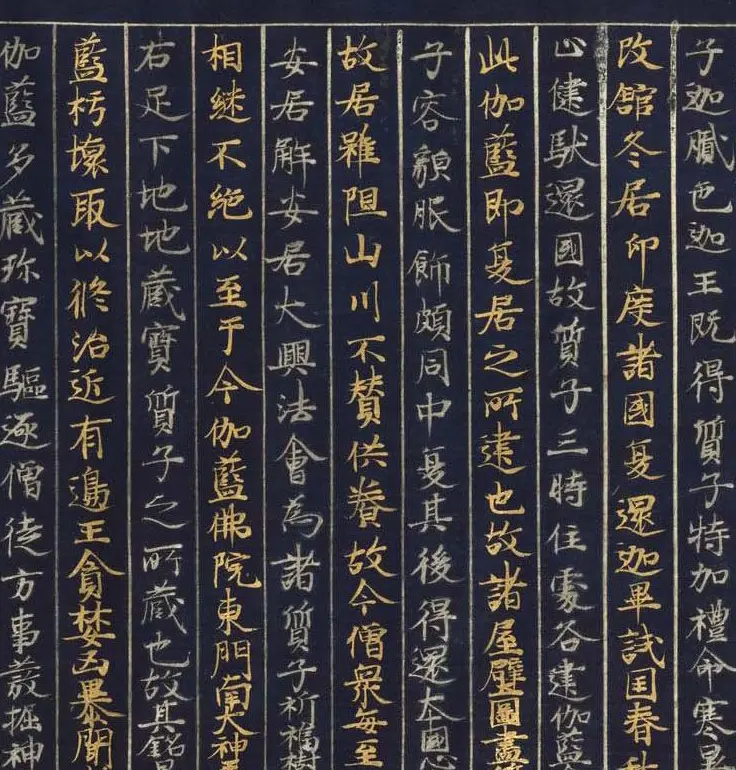 子迦膩色迦王既得質子特加禮命寒暑
改館冬居印度諸國夏還迦畢試国春秋
止健馱邏國故質子三時住處各建伽藍
此伽藍即夏居之所建也故諸屋壁圖畫
子容貌服飾頗同中夏其後得還本國心
故居雖阻山川不替供養故今僧衆每至
安居解安居大興法會為諸質子祈福樹
相継不絶以至于今伽藍佛院東門南大神王
右足下地地藏寶質子之所藏也故其銘曰
藍朽壞取以修治近有邊王貪婪凶暴聞
伽藍多藏珎寶驅逐僧徒方事發掘神